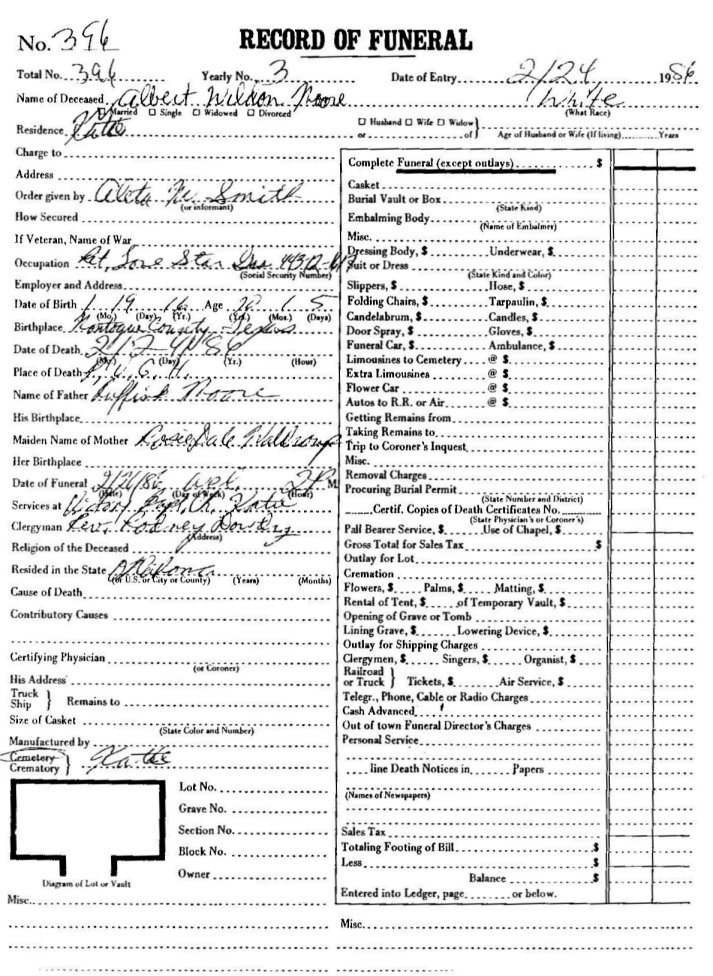 No. 396
RECORD OF FUNERAL
Total No. 396 Yearly No. 3 Date of Entry 2/24 1986
Name of Deceased Albert Wildon Moore White
☐ Married ☐ Single ☐ Widowed ☐ Divorced (What Race)
Residence Rattan ☐ Husband ☐ Wife ☐ Widow } or of Age of Husband or Wife (If living) Years
Charge to
Address
Order given by Aleta M. Smith
(or informant)
How Secured
If Veteran, Name of War
Occupation Ret. Lone Star Gas
(Social Security Number)
Employer and Address
Date of Birth 1 19 16 Age 70 1 5
(Mo.) (Day) (Yr.) (Yrs.) (Mos.) (Days)
Birthplace Montague County, Texas
Date of Death 2/24/86
(Mo.) (Day) (Yr.) (Hour)
Place of Death
Name of Father Moore
His Birthplace
Maiden Name of Mother
Her Birthplace
Date of Funeral 2/26/86 Wed. 2 P M.
(Date) (Day of Week) (Hour)
Services at Victory Bapt. Ch.
Clergyman Rev. Rodney
(Address)
Religion of the Deceased
Resided in the State Oklahoma
(or U.S. or City or County) (Years) (Months)
Cause of Death
Contributory Causes
Certifying Physician
(or Coroner)
His Address
Truck
Ship } Remains to
Size of Casket
(State Color and Number)
Manufactured by
Cemetery
Crematory }
Lot No.
Grave No.
Section No.
Block No.
Owner
Diagram of Lot or Vault
Misc.
Complete Funeral (except outlays) $
Casket
Burial Vault or Box
(State Kind)
Embalming Body
(Name of Embalmer)
Misc.
Dressing Body, $ Underwear, $
Suit or Dress
(State Kind and Color)
Slippers, $ Hose, $
Folding Chairs, $ Tarpaulin, $
Candelabrum, $ Candles, $
Door Spray, $ Gloves, $
Funeral Car, $ Ambulance, $
Limousines to Cemetery @ $
Extra Limousines @ $
Flower Car @ $
Autos to R.R. or Air @ $
Getting Remains from
Taking Remains to
Trip to Coroner's Inquest
Misc.
Removal Charges
Procuring Burial Permit
(State Number and District)
Certif. Copies of Death Certificates No.
(State Physician's or Coroner's)
Pall Bearer Service, $ Use of Chapel, $
Gross Total for Sales Tax $
Outlay for Lot
Cremation
Flowers, $ Palms, $ Matting, $
Rental of Tent, $ of Temporary Vault, $
Opening of Grave or Tomb
Lining Grave, $ Lowering Device, $
Outlay for Shipping Charges
Clergymen, $ Singers, $ Organist, $
Railroad
or Truck } Tickets, $ Air Service, $
Telegr., Phone, Cable or Radio Charges
Cash Advanced
Out of town Funeral Director's Charges
Personal Service
line Death Notices in Papers
(Names of Newspapers)
Sales Tax
Totaling Footing of Bill $
Less $
Balance $
Entered into Ledger, page or below.
Misc.